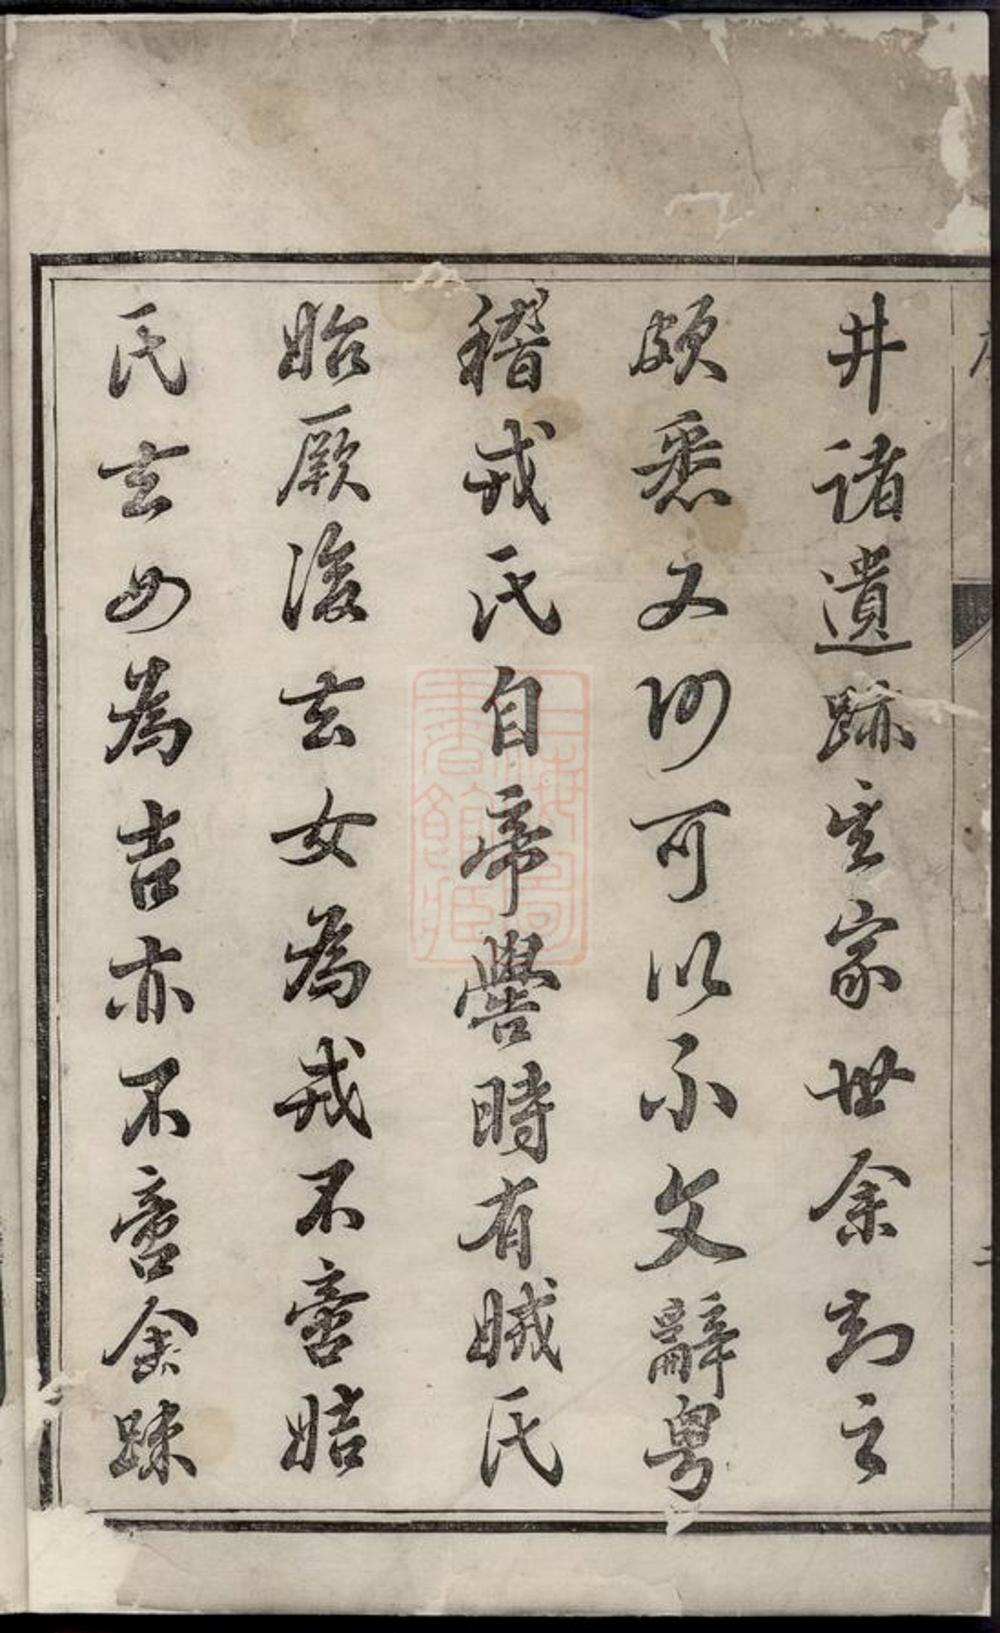 井諸遺跡其家世余知之
頗悉又何可以不文辭粵
稽戎氏自帝嚳時有娀氏
始厥後去女為戎不啻姞
氏去女為吉亦不啻余疎